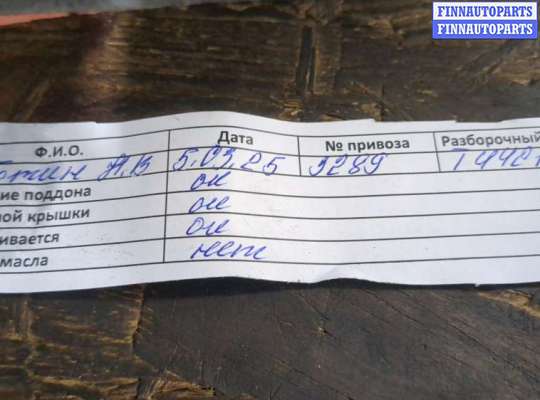 FINNAUTOPARTS
FINNAUTOPARTS
Ф.И.О. Дата № привоза Разборочный
А.В 5.03.25 3289
ие поддона ок
ной крышки ок
ивается ок
масла нет